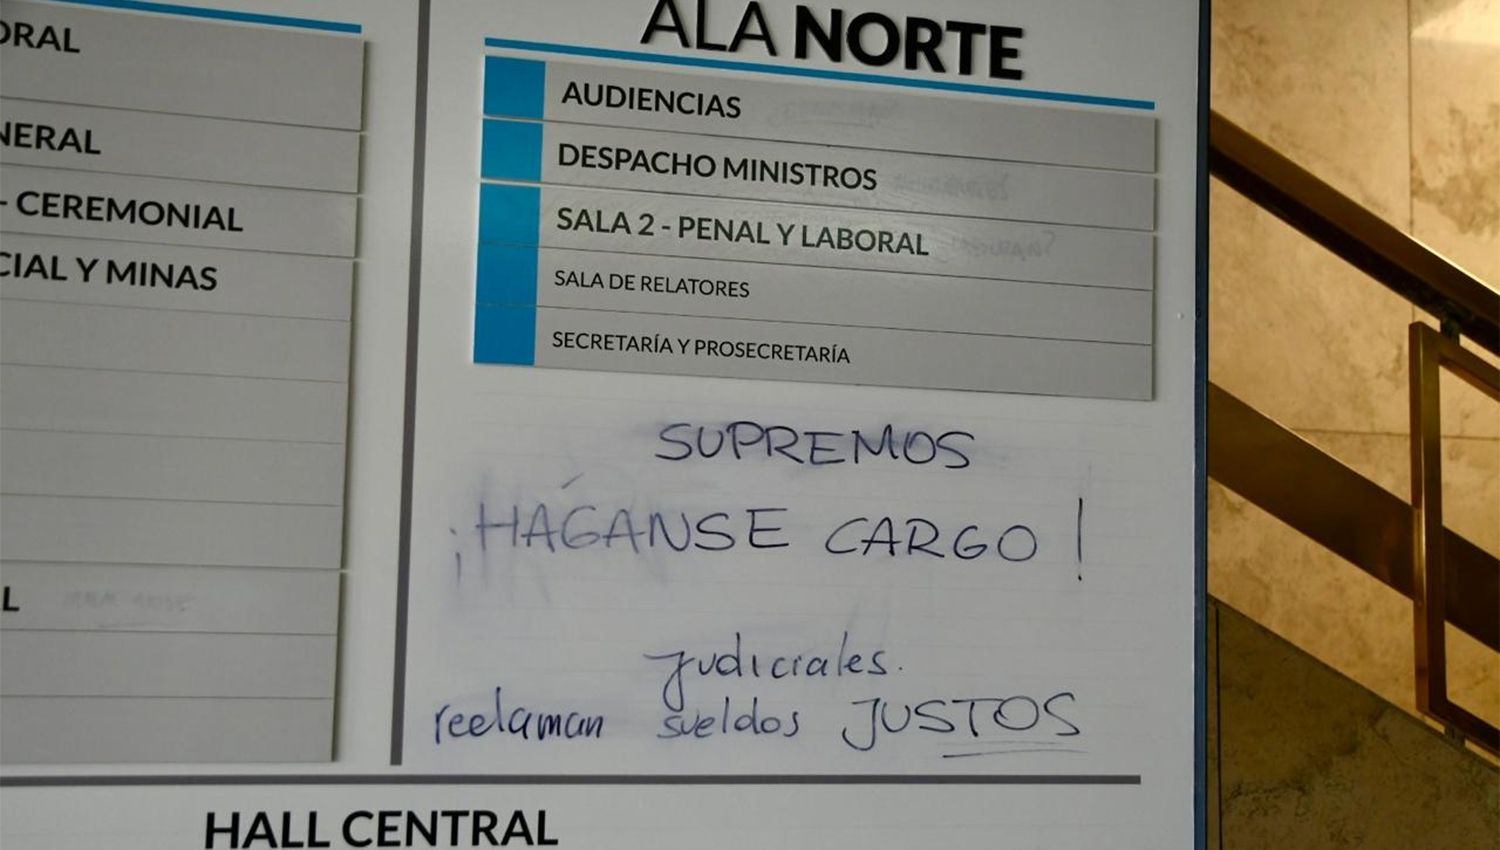 ORAL
NERAL
- CEREMONIAL
CIAL Y MINAS
L
ALA NORTE
AUDIENCIAS
DESPACHO MINISTROS
SALA 2 - PENAL Y LABORAL
SALA DE RELATORES
SECRETARÍA Y PROSECRETARÍA
SUPREMOS
¡HÁGANSE CARGO!
Judiciales.
reclaman sueldos JUSTOS
HALL CENTRAL